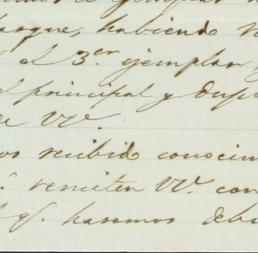 ejemplar
barque, habiendo
el 3.er ejemplar
principal y dup
de VV.
recibido conocim
remiten VV. con
q. haremos debi